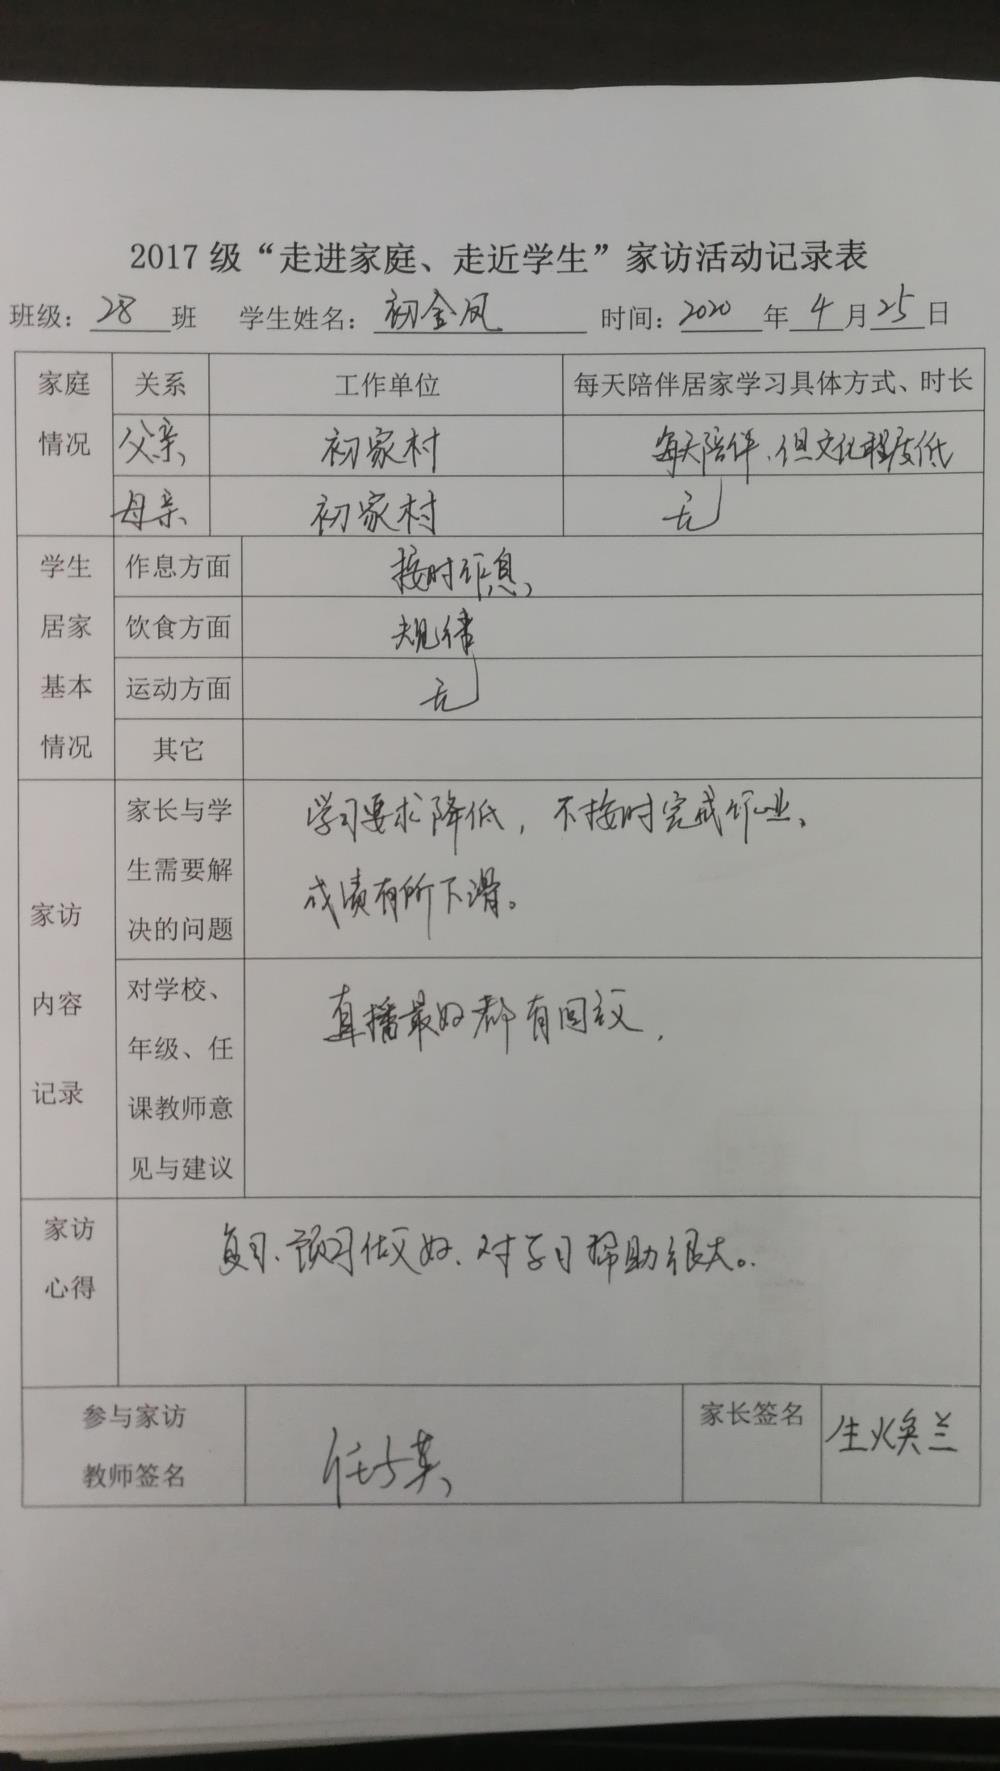 2017 级“走进家庭、走近学生”家访活动记录表
班级：28班 学生姓名：初金凤 时间：2020年4月25日
家庭情况 关系 工作单位 每天陪伴居家学习具体方式、时长
父亲 初家村 每天陪伴、但文化程度低
母亲 初家村 无
学生居家基本情况 作息方面 按时作息
饮食方面 规律
运动方面 无
其它
家访内容记录 家长与学生需要解决的问题 学习要求降低，不按时完成作业、
成绩有所下滑。
对学校、年级、任课教师意见与建议 直播最好都有回放，
家访心得 复习、预习做好、对学习帮助很大。
参与家访教师签名 家长签名 生焕兰